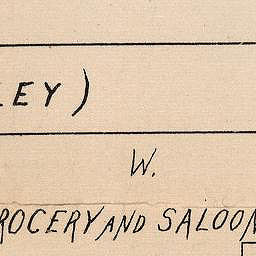 LEY)
W.
ROCERY AND SALOON